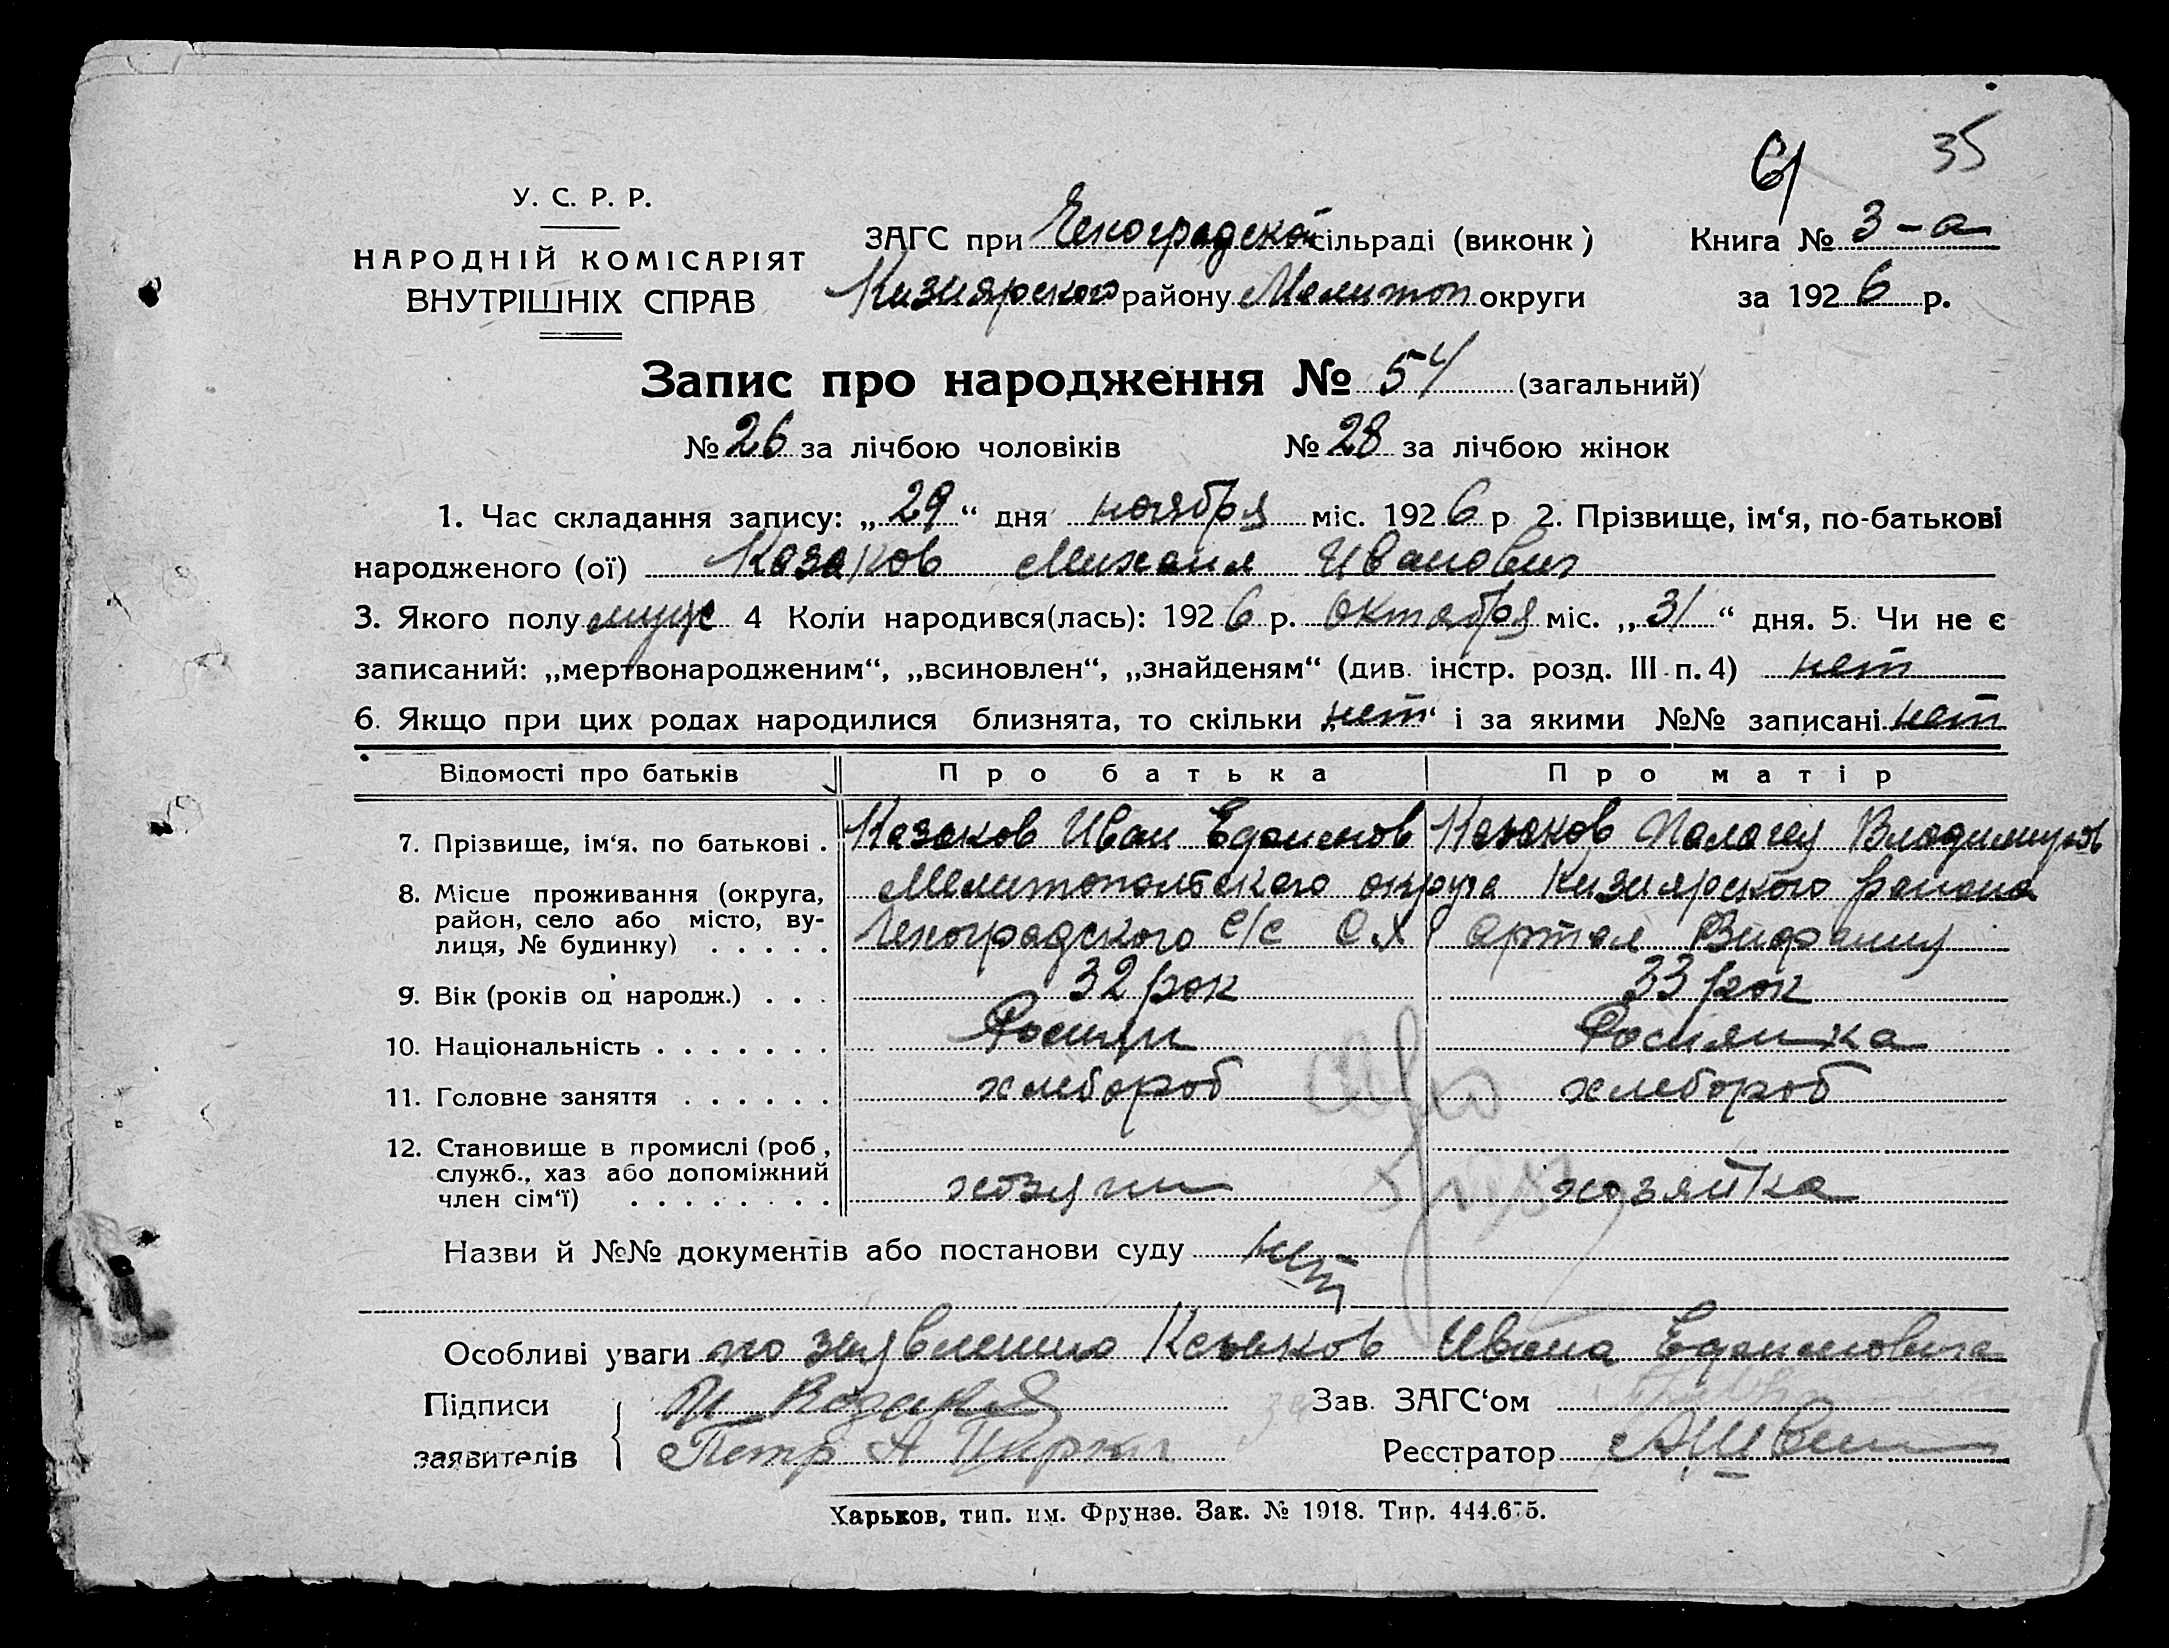 61 35
У. С. Р. Р.
НАРОДНІЙ КОМІСАРІЯТ
ВНУТРІШНІХ СПРАВ
ЗАГС при сільраді (виконк)
Кизиярского району Мелитоп округи
Книга № 3-а
за 1926 р.
Запис про народження № 54 (загальний)
№ 26 за лічбою чоловіків № 28 за лічбою жінок
1. Час складання запису: „29“ дня ноября міс. 1926 р 2. Прізвище, ім‘я, по-батькові
народженого (ої) Казаков Михаил Иванович
3. Якого полу муж 4 Коли народився(лась): 1926 р. октября міс. „31“ дня. 5. Чи не є
записаний: „мертвонародженим“, „всиновлен“, „знайденям“ (див. інстр. розд. III п. 4) нет
6. Якщо при цих родах народилися близнята, то скільки „нет“ і за якими №№ записані нет
Відомості про батьків Про батька Про матір
7. Прізвище, ім‘я, по батькові . Казаков Иван Казаков Владимиров
8. Місце проживання (округа, район, село або місто, вулиця, № будинку) . . . . .
Мелитопольского округа Кизиярского района
с/с С Х Артел
9. Вік (років од народж.) . . . 32 рок 33 рок
10. Національність . . . . . . . Росиян Росиянка
11. Головне заняття . . . . . . хлебороб хлебороб
12. Становище в промислі (роб, служб., хаз або допоміжний член сім‘ї) . . . . . . . . хозяин хозяйка
Назви й №№ документів або постанови суду нет
Особливі уваги по заявлению Казаков Ивана
Підписи
заявителів
И Казаков
Петр А
Зав. ЗАГС‘ом
Реєстратор
Харьков, тип. им. Фрунзе. Зак. № 1918. Тир. 444.675.